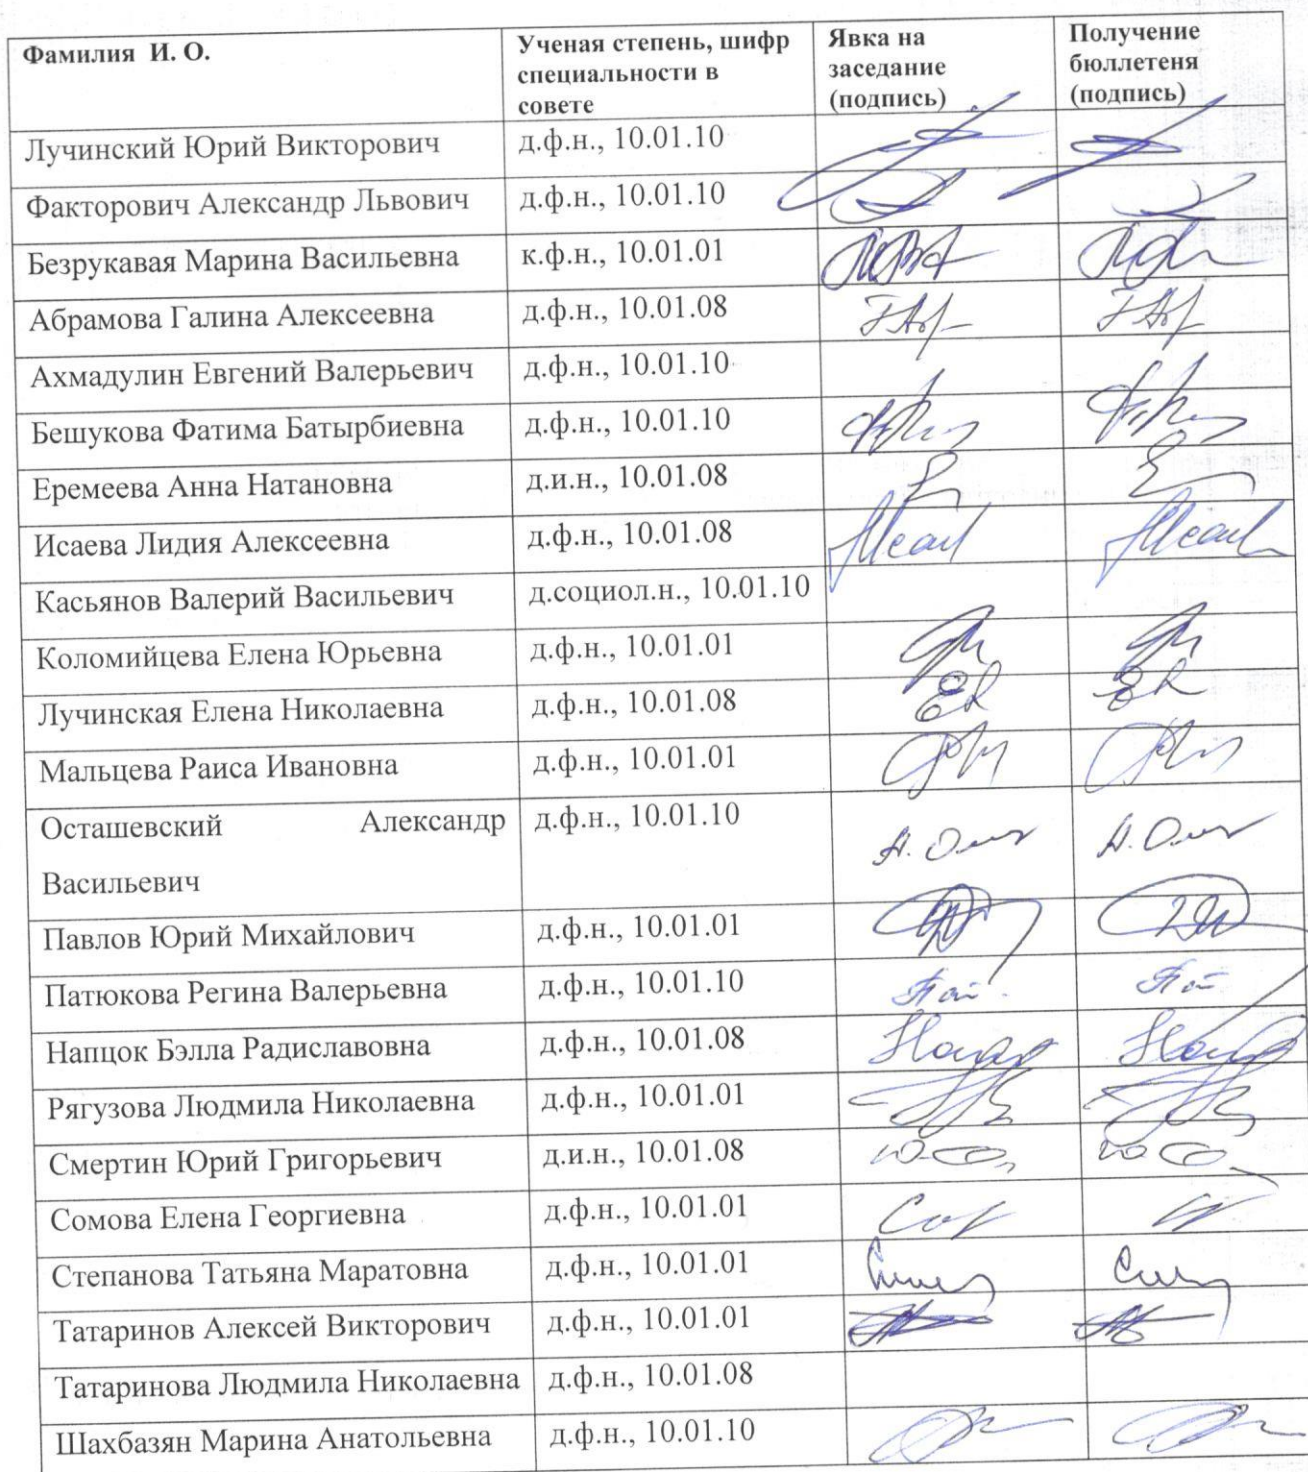 Фамилия И. О.
Ученая степень, шифр
специальности в
совете
Явка на
заседание
(подпись)
Получение
бюллетеня
(подпись)
Лучинский Юрий Викторович д.ф.н., 10.01.10
Факторович Александр Львович д.ф.н., 10.01.10
Безрукавая Марина Васильевна к.ф.н., 10.01.01
Абрамова Галина Алексеевна д.ф.н., 10.01.08
Ахмадулин Евгений Валерьевич д.ф.н., 10.01.10
Бешукова Фатима Батырбиевна д.ф.н., 10.01.10
Еремеева Анна Натановна д.и.н., 10.01.08
Исаева Лидия Алексеевна д.ф.н., 10.01.08
Касьянов Валерий Васильевич д.социол.н., 10.01.10
Коломийцева Елена Юрьевна д.ф.н., 10.01.01
Лучинская Елена Николаевна д.ф.н., 10.01.08
Мальцева Раиса Ивановна д.ф.н., 10.01.01
Осташевский Александр д.ф.н., 10.01.10
Васильевич
Павлов Юрий Михайлович д.ф.н., 10.01.01
Патюкова Регина Валерьевна д.ф.н., 10.01.10
Напцок Бэлла Радиславовна д.ф.н., 10.01.08
Рягузова Людмила Николаевна д.ф.н., 10.01.01
Смертин Юрий Григорьевич д.и.н., 10.01.08
Сомова Елена Георгиевна д.ф.н., 10.01.01
Степанова Татьяна Маратовна д.ф.н., 10.01.01
Татаринов Алексей Викторович д.ф.н., 10.01.01
Татаринова Людмила Николаевна д.ф.н., 10.01.08
Шахбазян Марина Анатольевна д.ф.н., 10.01.10